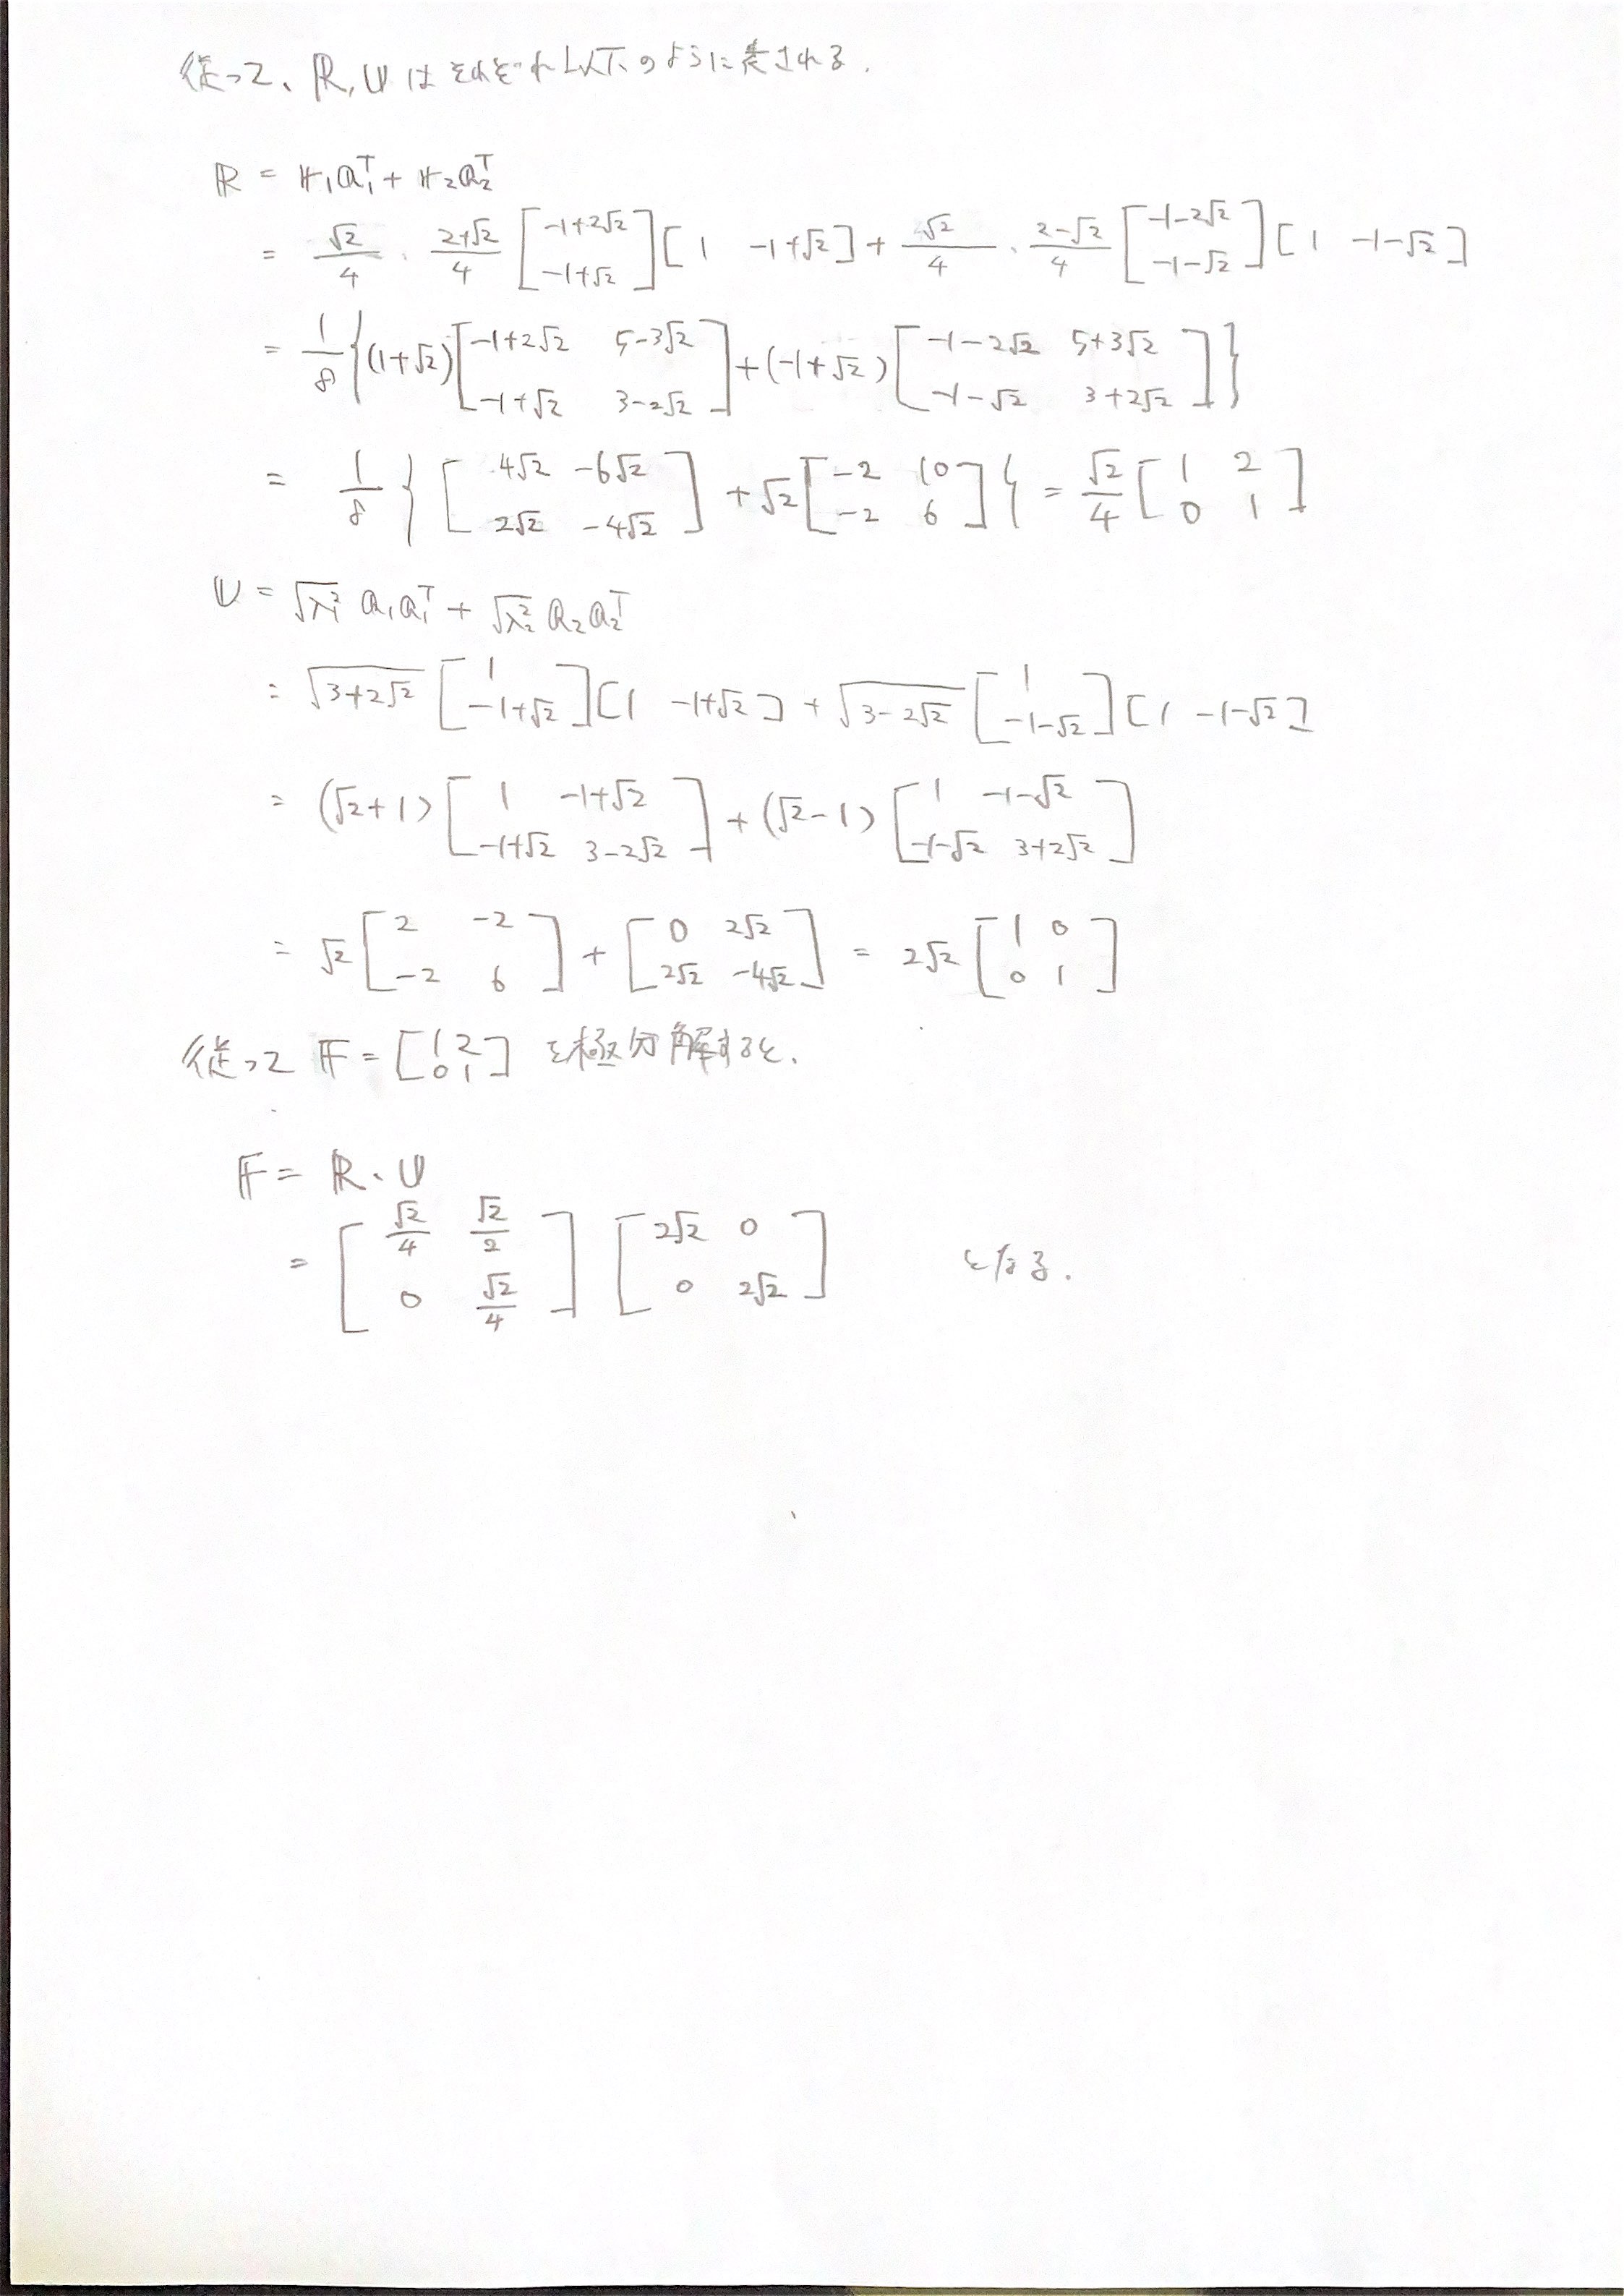 従って、ℝ, 𝕌 はそれぞれ以下のように表される.
ℝ = 𝕣₁𝕒₁ᵀ + 𝕣₂𝕒₂ᵀ
= √2/4 · (2+√2)/4 [−1+2√2; −1+√2] [1 −1+√2] + √2/4 · (2−√2)/4 [−1−2√2; −1−√2] [1 −1−√2]
= 1/8 {(1+√2) [−1+2√2 5−3√2; −1+√2 3−2√2] + (−1+√2) [−1−2√2 5+3√2; −1−√2 3+2√2]}
= 1/8 {[4√2 −6√2; 2√2 −4√2] + √2 [−2 10; −2 6]} = √2/4 [1 2; 0 1]
𝕌 = √λ₁² 𝕒₁𝕒₁ᵀ + √λ₂² 𝕒₂𝕒₂ᵀ
= √(3+2√2) [1; −1+√2] [1 −1+√2] + √(3−2√2) [1; −1−√2] [1 −1−√2]
= (√2+1) [1 −1+√2; −1+√2 3−2√2] + (√2−1) [1 −1−√2; −1−√2 3+2√2]
= √2 [2 −2; −2 6] + [0 2√2; 2√2 −4√2] = 2√2 [1 0; 0 1]
従って 𝔽 = [1 2; 0 1] を極分解すると.
𝔽 = ℝ · 𝕌
= [√2/4 √2/2; 0 √2/4] [2√2 0; 0 2√2] となる.